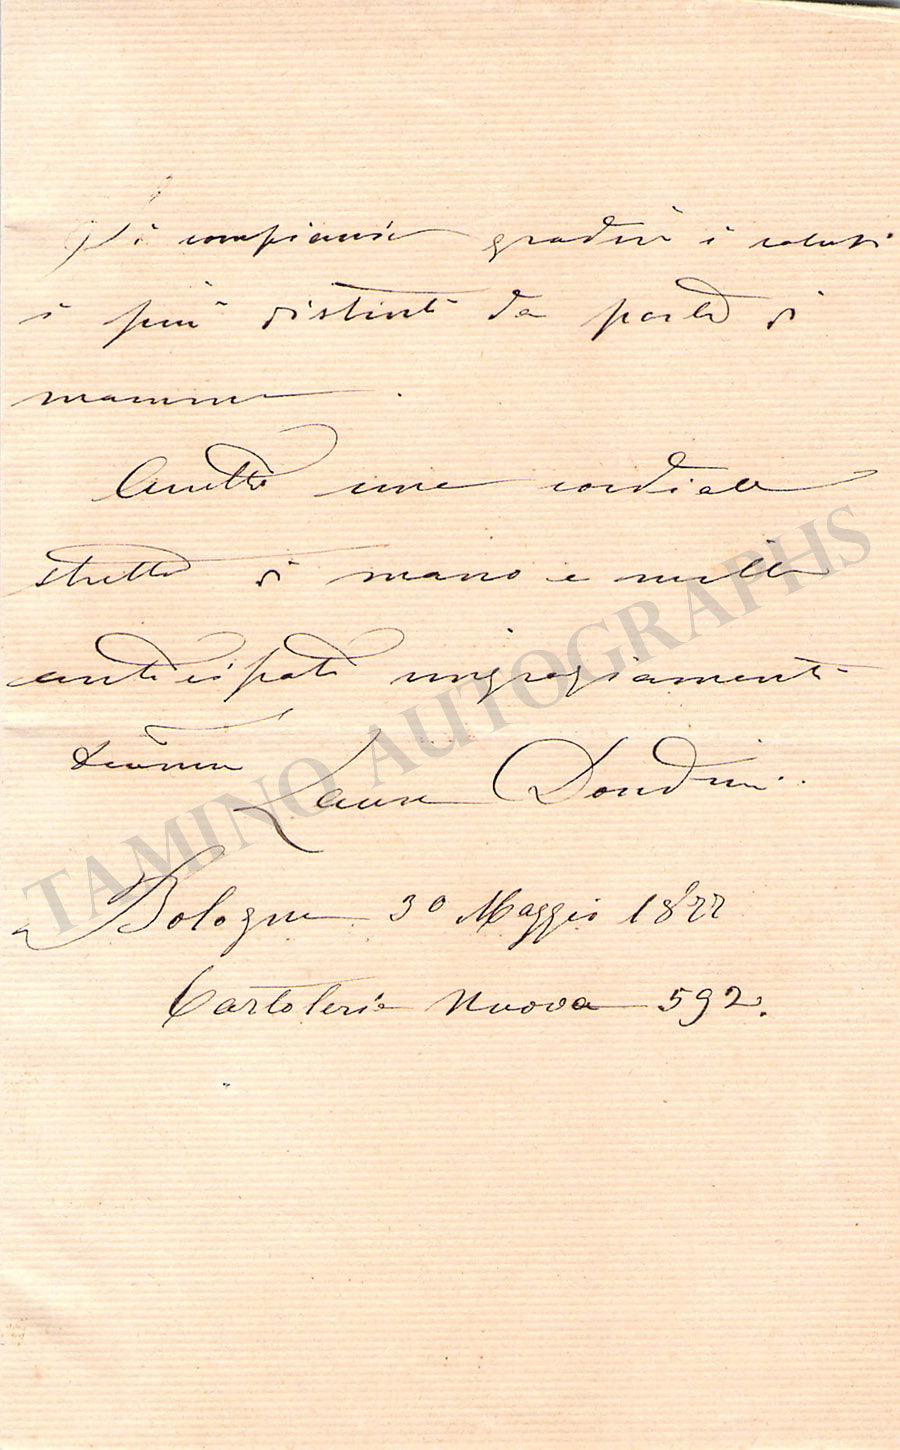 Si compiaccia gradire i saluti
i più distinti da parte di
mamma.
Accetti una cordiale
stretta di mano e mille
anticipati ringraziamenti
Laura Bondini.
Bologna 30 Maggio 1877
Cartoleria Nuova 592.
TAMINO AUTOGRAPHS